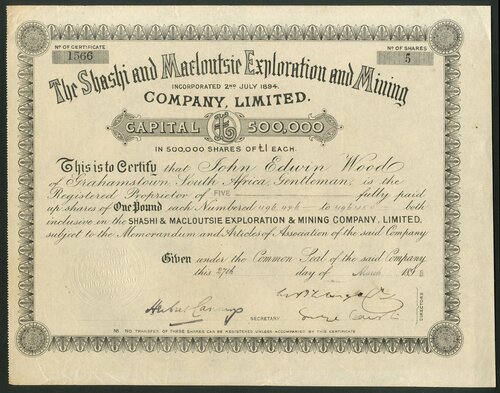 Nº OF CERTIFICATE
1566
Nº OF SHARES
5
The Shashi and Macloutsie Exploration and Mining
INCORPORATED 2ND JULY 1894.
COMPANY, LIMITED.
CAPITAL £ 500,000
IN 500,000 SHARES OF £1 EACH.
This is to Certify that John Edwin Wood
of Grahamstown, South Africa, Gentleman, is the
Registered Proprietor of FIVE fully paid
up shares of One Pound each Numbered to both
inclusive in the SHASHI & MACLOUTSIE EXPLORATION & MINING COMPANY, LIMITED.
subject to the Memorandum and Articles of Association of the said Company
Given under the Common Seal of the said Company
this 27th day of March 189
SECRETARY
DIRECTORS
NB. NO TRANSFER OF THESE SHARES CAN BE REGISTERED UNLESS ACCOMPANIED BY THIS CERTIFICATE